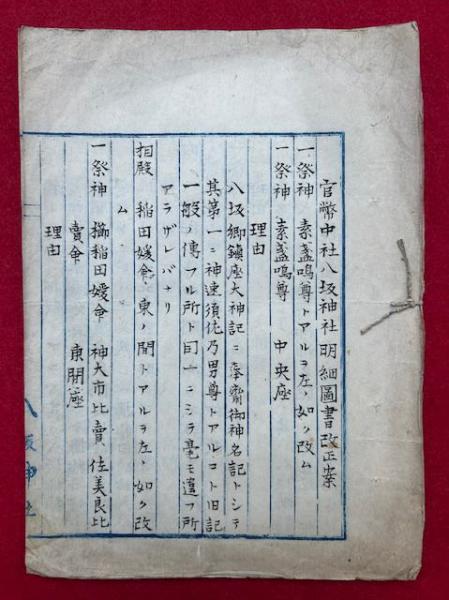 官幣中社八坂神社明細圖書改正案
一祭神 素盞嗚尊トアルヲ左ノ如ク改ム
一祭神 素盞嗚尊 中央座
理由
八坂鄉鎭座大神記ニ奉齋御神名記トシテ
其第一ニ神速須佐乃男尊トアルコト旧記
一般ノ傳フル所ト同一ニシテ毫モ違フ所
アラザレバナリ
相殿 稲田媛命 東ノ間トアルヲ左ノ如ク改
ム
一祭神 櫛稲田媛命 神大市比賣 佐美良比
賣命 東間座
理由
八坂神社